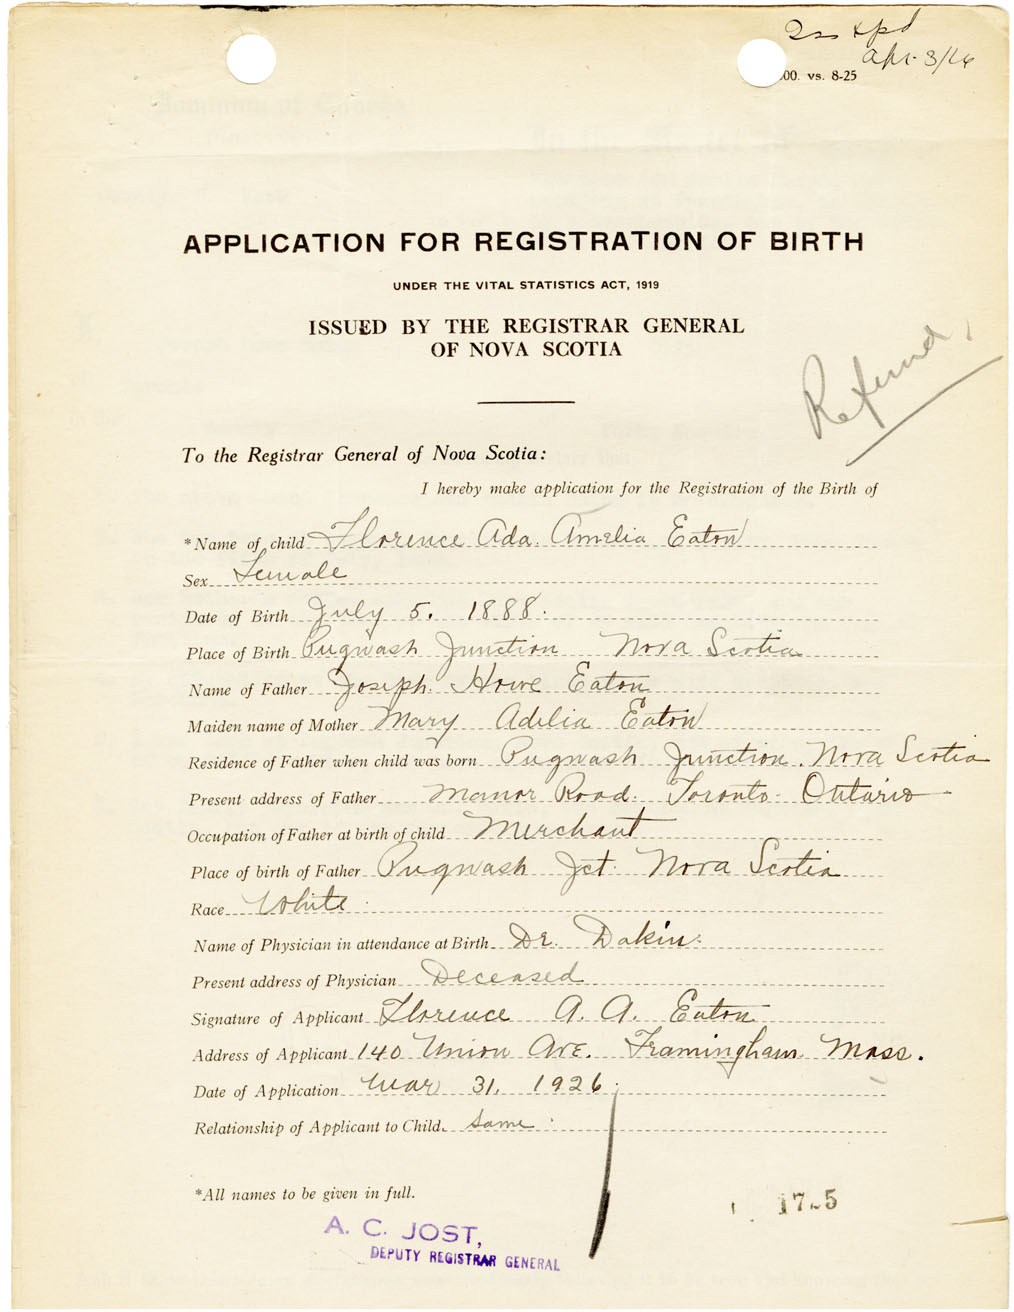 xpd
Apr. 3/26
00. vs. 8-25
APPLICATION FOR REGISTRATION OF BIRTH
UNDER THE VITAL STATISTICS ACT, 1919
ISSUED BY THE REGISTRAR GENERAL
OF NOVA SCOTIA
Refund.
To the Registrar General of Nova Scotia:
I hereby make application for the Registration of the Birth of
*Name of child Florence Ada. Amelia Eaton
Sex Female
Date of Birth July 5. 1888.
Place of Birth Pugwash Junction Nova Scotia
Name of Father Joseph. Howe Eaton
Maiden name of Mother Mary Adelia Eaton
Residence of Father when child was born Pugwash Junction. Nova Scotia
Present address of Father Manor Road. Toronto. Ontario
Occupation of Father at birth of child Merchant
Place of birth of Father Pugwash Jct. Nova Scotia
Race White.
Name of Physician in attendance at Birth Dr. Dakin.
Present address of Physician Deceased
Signature of Applicant Florence A. A. Eaton
Address of Applicant 140 Union Ave. Framingham Mass.
Date of Application Mar 31, 1926.
Relationship of Applicant to Child. same.
*All names to be given in full.
A. C. JOST,
DEPUTY REGISTRAR GENERAL